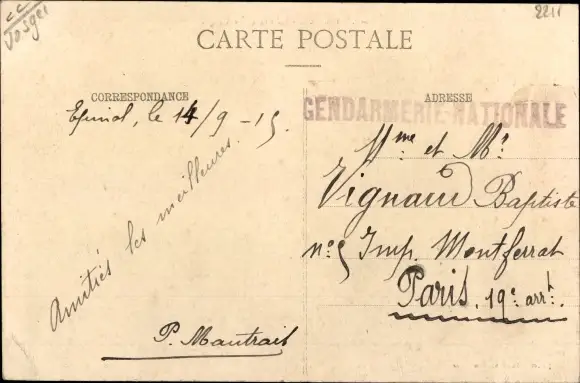 Vosges
2211
CARTE POSTALE
CORRESPONDANCE
ADRESSE
GENDARMERIE NATIONALE
Epinal, le 14/9-15.
Amitiés les meilleures.
P. Mautrait
Mme et Mr
Vignaud Baptiste
no 5 Imp. Montferrat
Paris. 19e arrt.